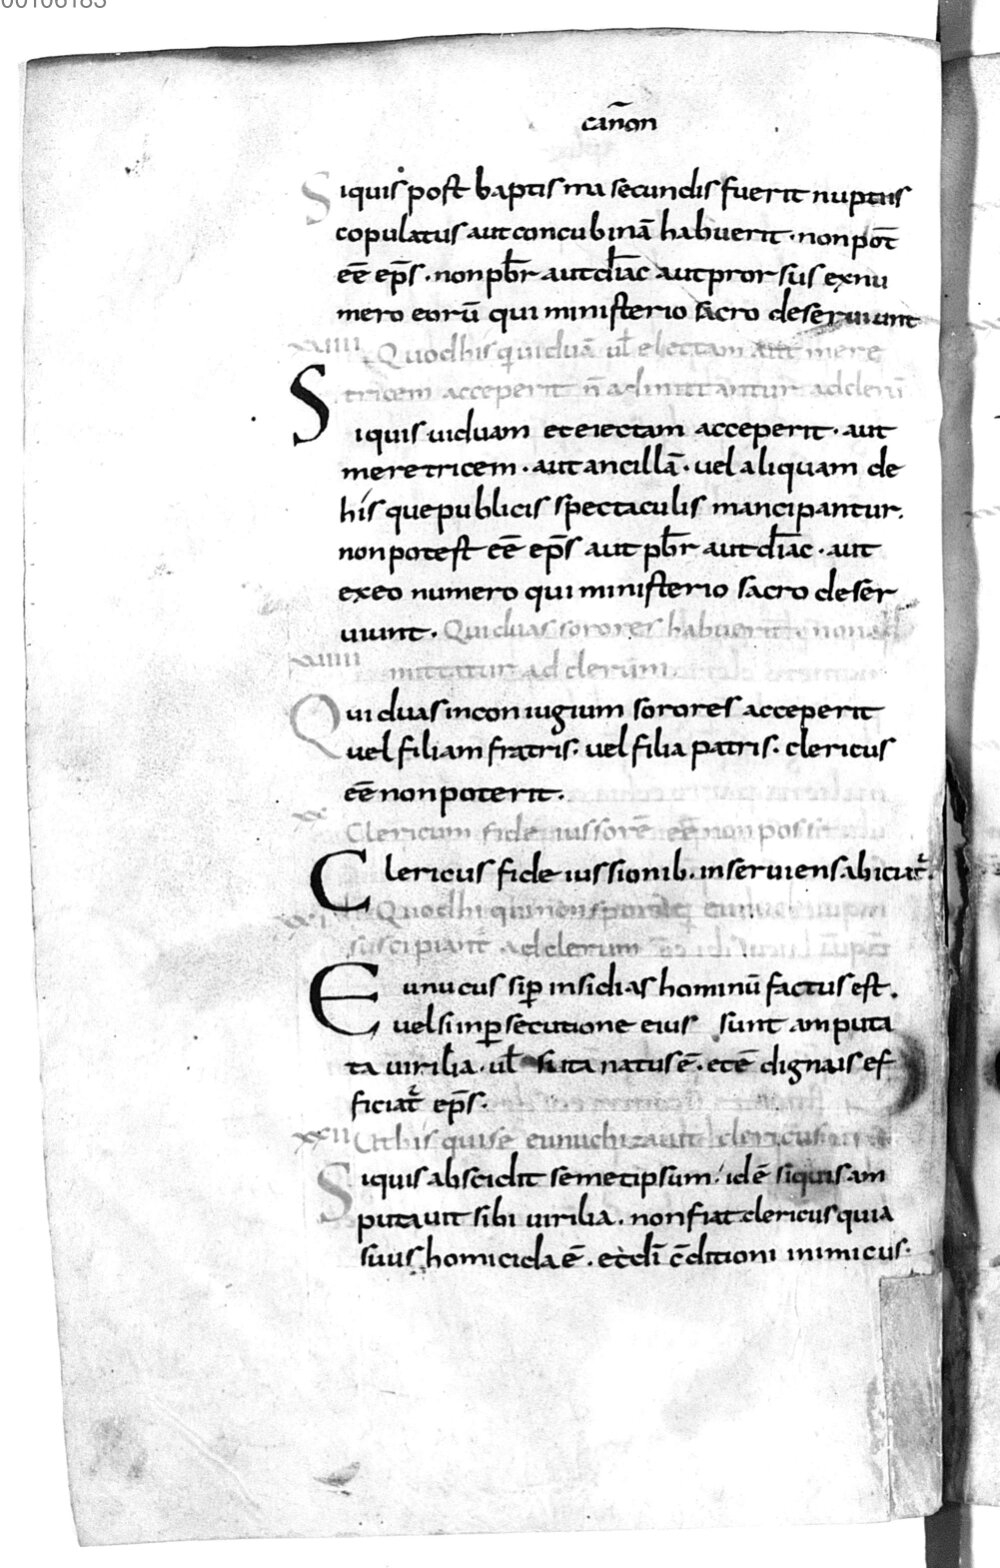 00106183
cañon
Siquis post baptisma secundis fuerit nuptiis
copulatus aut concubinā habuerit · non pot̄
eē ep̄s · non pb̄r aut diāc aut prorsus ex nu
mero eorū qui ministerio sacro deserviunt
xviiii Quod his qui viduā ul̄ electam aut mere
tricem acceperit n̄ admittantur ad clerū
Siquis viduam et eiectam acceperit · aut
meretricem · aut ancillā · vel aliquam de
his que publicis spectaculis mancipantur.
non potest eē ep̄s aut pb̄r aut diāc · aut
ex eo numero qui ministerio sacro deser
viunt. Qui duas sorores habuerit non ad
xviiii mittatur ad clerum.
Qui duas in coniugium sorores acceperit
vel filiam fratris. vel filia patris. clericus
eē non poterit.
xx Clericum fide iussorē eē non posse
Clericus fide iussionib. inserviens abiciat̄.
xxi Quod hi qui non sponte eunuch
suscipiant̄ ad clerum
Eunucus si ꝑ insidias hominū factus est.
vel si in ꝑsecutione eius sunt amputa
ta virilia. ul̄ si ita natus ē. et ē dignus ef
ficiat̄ ep̄s.
xxii Ut his qui se eunuchizavit clericus
Siquis abscidit semetipsum. idē siquis am
putavit sibi virilia. non fiat clericus quia
suus homicida ē. et dī c̄ditioni inimicus.